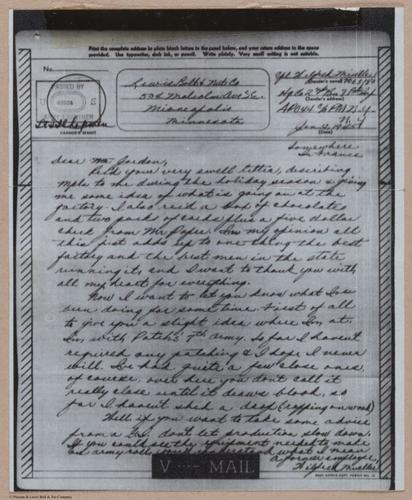 Print the complete address in plain block letters in the panel below, and your return address in the space provided. Use typewriter, dark ink, or pencil. Write plainly. Very small writing is not suitable.
No.
PASSED BY
Lewis Bolt & Nut Co
504 Malcolm Ave S.E.
Minneapolis
Minnesota
Cpl. Wilfred
(Sender's name)
Hq Co 2nd Bn
(Sender's address)
APO 44 % P.M. N.Y.
N.Y.
Jan 2, 1945
(Date)
(CENSOR'S STAMP)
Somewhere
In France
Dear Mr Gordon,
Rec'd your very swell letter, describing
Mpls to me during the holiday season & giving
me some idea of what is going on at the
factory. I also rec'd a box of chocolates
and two pack of cards plus a five dollar
check from Mr. In my opinion all
this just adds up to one thing the best
factory and the best men in the state
running it, and I want to thank you with
all my heart for everything.
Now I want to let you know what I've
been doing for some time. First of all
to give you a slight idea where I'm at.
I'm with Patch's 7th army. So far I haven't
required any patching & I hope I never
will. I've had quite a few close ones
of course, over here you don't call it
really close until it draws blood, so
far I haven't shed a drop (rapping on wood)
Well if you want to take some advice
from a G.I. don't let production slow down.
If you could see the equipment needed to make
an army roll you'd understand what I mean
a former employee,
Wilfred
V···— MAIL